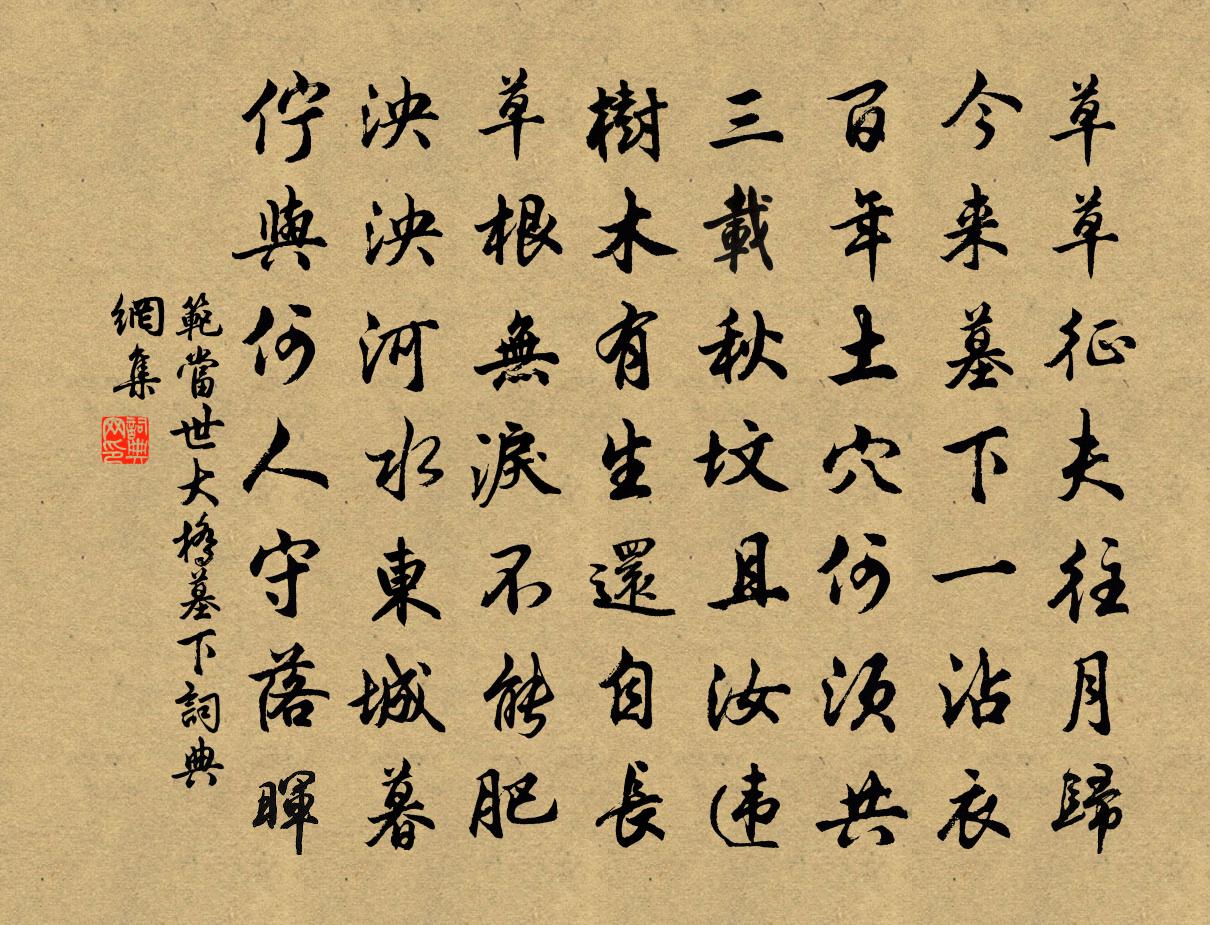 草草征夫往月歸
今来墓下一沾衣
百年土穴何須共
三載秋坟且汝违
樹木有生還自長
草根無淚不能肥
泱泱河水東城暮
佇與何人守落暉
範當世大橋墓下詞典
網集
詞典
网印